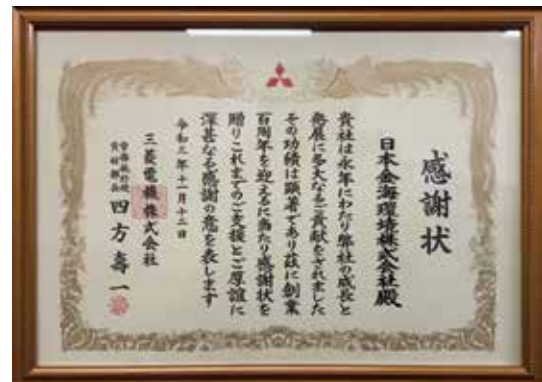 感謝状
日本金海環境株式会社殿
貴社は永年にわたり弊社の成長と
発展に多大なるご貢献をされました
その功績は顕著であり茲に創業
百周年を迎えるに当たり感謝状を
贈りこれまでのご支援とご厚誼に
深甚なる感謝の意を表します
令和三年十一月十二日
三菱電機株式会社
常務執行役
資材部長
四方壽一